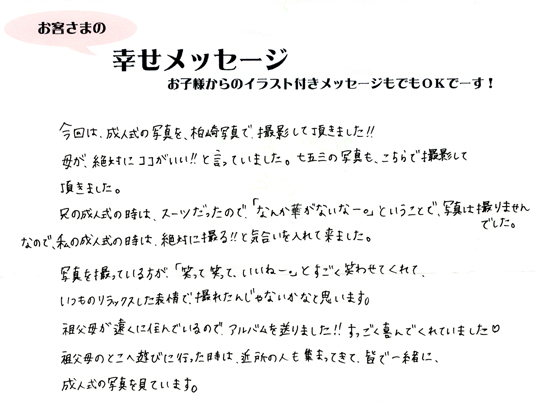 お客さまの
幸せメッセージ
お子様からのイラスト付きメッセージもでもOKでーす！
今回は、成人式の写真を、柏崎写真で、撮影して頂きました!!
母が、絶対にココがいい!!と言っていました。七五三の写真も、こちらで撮影して
頂きました。
兄の成人式の時は、スーツだったので、「なんか華がないなー。」ということで、写真は撮りません
でした。
なので、私の成人式の時は、絶対に撮る!!と気合いを入れて来ました。
写真を撮っている方が、「笑って笑って、いいねー。」とすごく笑わせてくれて、
いつものリラックスした表情で、撮れたんじゃないかなと思います。
祖父母が遠くに住んでいるので、アルバムを送りました!!すっごく喜んでくれていました♡
祖父母のとこへ遊びに行った時は、近所の人も集まってきて、皆で一緒に、
成人式の写真を見ています。